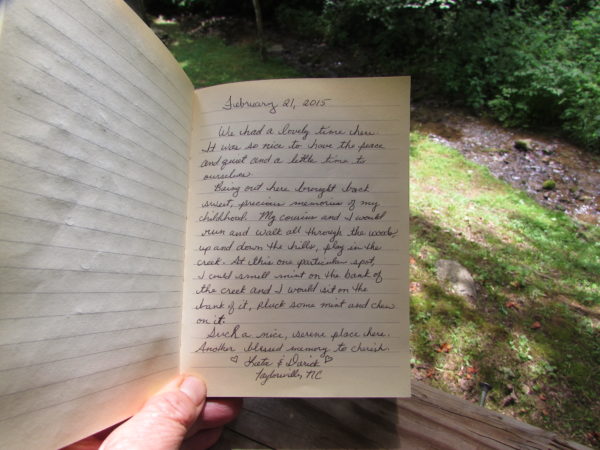 February 21, 2015
We had a lovely time here.
It was so nice to have the peace
and quiet and a little time to
ourselves.
Being out here brought back
sweet, precious memories of my
childhood. My cousins and I would
run and walk all through the woods,
up and down the hills, play in the
creek. At this one particular spot,
I could smell mint on the bank of
the creek and I would sit on the
bank of it, pluck some mint and chew
on it.
Such a nice, serene place here.
Another blessed memory to cherish.
♡ Katie & Darick ♡
Taylorsville, NC